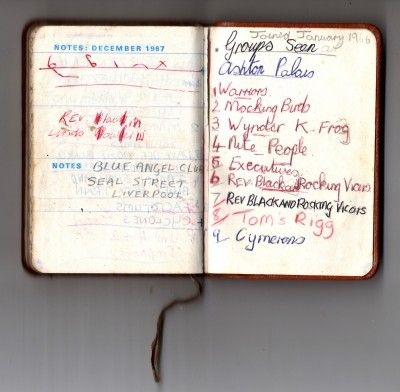 NOTES: DECEMBER 1967
6 6 1
Rev
NOTES
BLUE ANGEL CLUB
SEAL STREET
LIVERPOOL
Joined January 1966
Groups Seen
Ashton Palais
1 Warriors
2 Mocking Birds
3 Wynder K. Frog
4 Nite People
5 Executives
6 Rev. Black and Rocking Vicars
7 REV BLACK AND ROCKING VICARS
8 Tom's Rigg
9 Cymerons